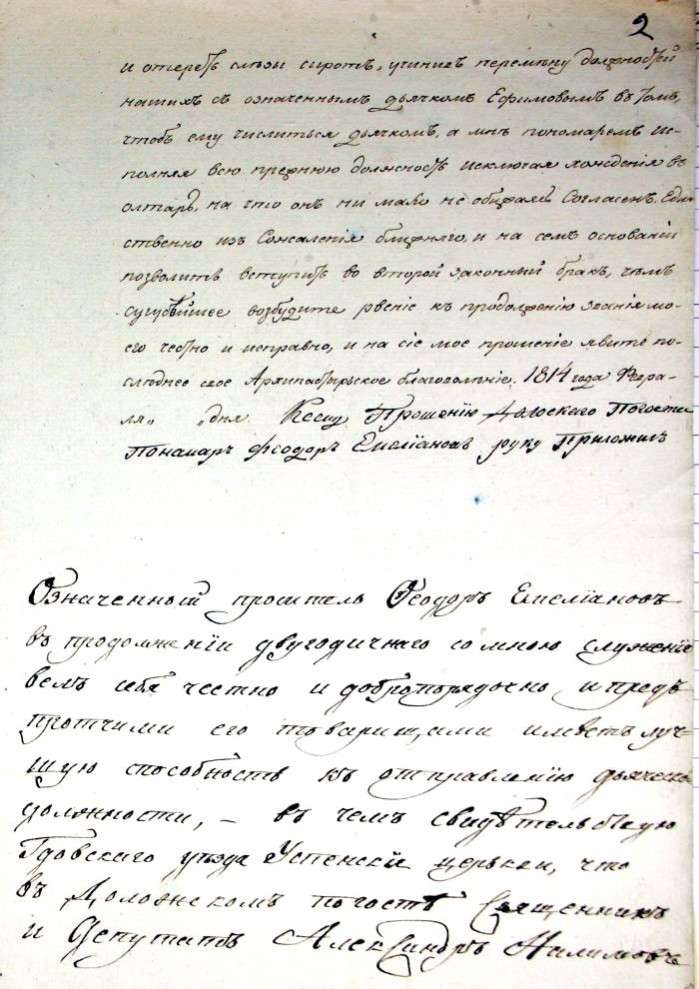 2
и отереть слѣзы сиротъ, учиниве перемѣну должностей
нашихъ съ означеннымъ дьячкомъ Ефимовымъ въ томъ,
чтобъ ему числиться дьячкомъ, а мнѣ пономаремъ ис-
полняя всю прежнюю должность исключая хожденія въ
олтарь, на что онъ ни мало не обижаясь Согласенъ, Един
ственно изъ Сожаленія ближняго, и на семъ основаніи
позволить вступить во второй законный бракъ, чѣмъ
сугубѣйшее возбудите рвеніе къ продолженію званія мо-
его честно и исправно, и на сіе мое прошеніе явите по-
слѣднее свое Архипастырское благоволѣніе. 1814 года Февра-
ля „ „ дня. Ксему Прошенію Доложского Погоста
Понамарь Феодоръ Емеліановъ руку Приложилъ
Означенный проситель Феодоръ Емеліановъ
въ продолженіи двугодичнаго со мною служенія
велъ себя честно и добропорядочно и предъ
протчими его товарищами имѣетъ луч-
шую способность къ отправленію дьяческой
должности, – въ чемъ свидѣтельствую
Гдовскаго уѣзда Успенскій церькви, что
въ Доложскомъ погостѣ Священникъ
и Депутатъ Александръ Налимовъ